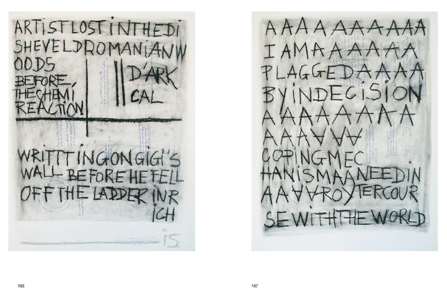 ARTiST LOST iN THE Di
SHEVELD ROMANiAN W
OODS
BEFORE
THE SHEMi
REACTiON
D'ARK
CAL
WRITTTiNGONGiGi'S
WALL BEFORE HE FELL
OFF THE LADDER iN R
iCH
iS
146
AAAAAAAAAA
I AM A AAAAAA
PLAGGED AAAA
BY iNDECiSiON
AAAAAAAAA
AAAAVV
COPiNG MEC
HANiSMAANEEDiN
AAVVROYTERCOUR
SE WiTH THE WORLD
147